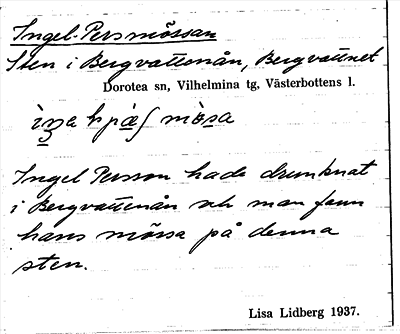 Ingel-Persmössan
Sten i Bergvattenån, Bergvattnet
Dorotea sn, Vilhelmina tg, Västerbottens l.
mö̀sa
Ingel Persson hade drunknat
i Bergvattenån och man fann
hans mössa på denna
sten.
Lisa Lidberg 1937.